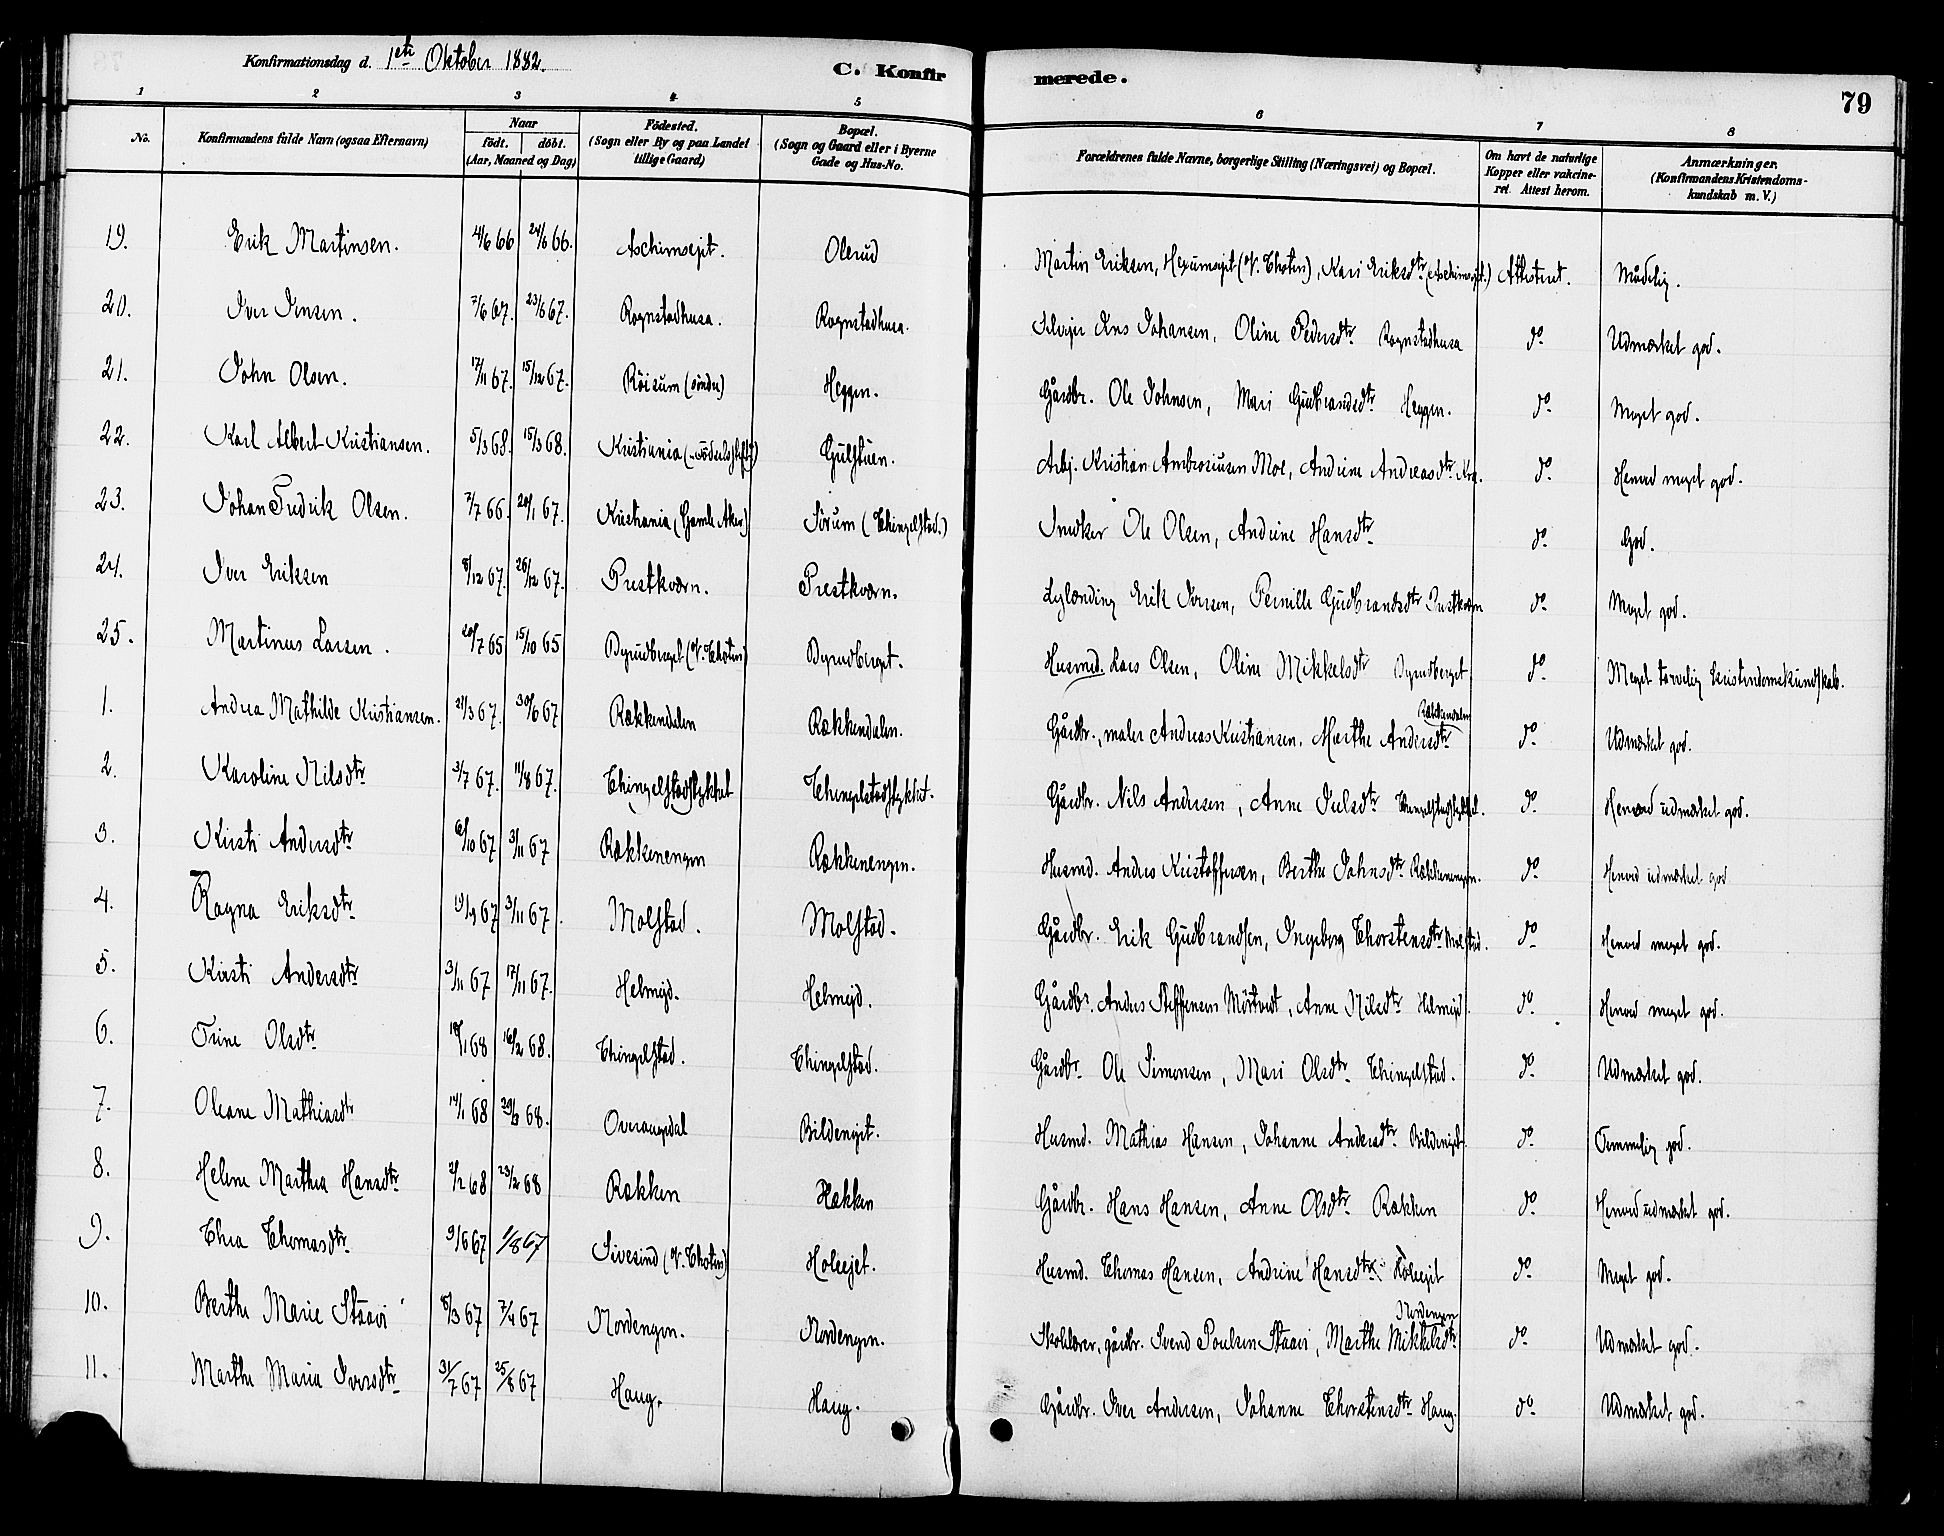 Konfirmationsdag d. 1ste Oktober 1882. C. Konfirmerede. 79
1 2 3 4 5 6 7 8
No. Konfirmandens fulde Navn (ogsaa Efternavn) Naar födt. döbt. (Aar, Maaned og Dag) Födested. (Sogn eller By og paa Landet tillige Gaard) Bopæl. (Sogn og Gaard eller i Byerne Gade og Hus-No. Forældrenes fulde Navne, borgerlige Stilling (Næringsvei) og Bopæl. Om havt de naturlige Kopper eller vakcineret. Attest herom. Anmærkninger. (Konfirmandens Kristendomskundskab m. V.)
19. Erik Martinsen. 4/6 66 24/6 66. Aschimsejet. Olerud Martin Eriksen, (V. Thoten), Kari Eriksdtr Attesteret. Mådelig.
20. Iver Jensen. 7/6 67. 23/6 67. Rognstadhusa. Rognstadhusa. Jens Johansen, Oline Pedersdtr. Rognstadhusa do. Udmærket god.
21. John Olsen. 17/11 67. 15/12 67. Röisum (söndre) Heggen. Gårdbr. Ole Johnsen, Mari Gudbrandsdtr Heggen. do. Meget god.
22. Karl Albert Kristiansen. 5/3 68. 15/3 68. Kristiania Gulstuen. Arbj. Kristian Ambrosiusen Moe, Andrine Andreasdtr Kra. do. Henved meget god.
23. Johan Fredrik Olsen. 7/7 66. 20/1 67. Kristiania (Gamle Aker) Sörum (Thingelstad.) Snedker Ole Olsen, Andrine Hansdtr do. God.
24. Iver Eriksen 8/12 67. 26/12 67. Prestkværn. Prestkværn. Erik Iversen, Pernille Gudbrandsdtr Prestkværn do. Meget god.
25. Martinus Larsen. 20/7 65 15/10 65 Byrudberget (V. Thoten) Byrudberget. Husmd. Lars Olsen, Oline Mikkelsdtr Byrudberget do. Meget tarvelig kristendomskundskab.
1. Andrea Mathilde Kristiansen. 21/3 67. 30/6 67 Rækkendalen Rækkendalen. Gårdbr., maler Andreas Kristiansen, Marthe Andersdtr Rækkendalen do. Udmærket god.
2. Karoline Nilsdtr 3/7 67. 11/8 67. Thingelstadstykket Thingelstadstykket. Gårdbr. Nils Andersen, Anne Juelsdtr Thingelstadstykket. do. Henved udmærket god.
3. Kirsti Andersdtr 6/10 67 3/11 67 Rækkenengen Rækkenengen. Husmd. Anders Kristoffersen, Berthe Johnsdtr Rækkenengen. do. Henved udmærket god
4. Ragna Eriksdtr 19/9 67 3/11 67. Molstad. Molstad. Gårdbr. Erik Gudbrandsen, Ingeborg Thorstensdtr Molstad. do. Henved meget god.
5. Kirsti Andersdtr 3/11 67 17/11 67. Helmejd. Helmejd. Gårdbr. Anders Steffensen Mörtvedt, Anne Nilsdtr Helmejd. do. Henved meget god.
6. Trine Olsdtr 18/1 68 16/2 68. Thingelstad. Thingelstad. Gårdbr. Ole Simensen, Mari Olsdtr. Thingelstad. do. Udmærket god.
7. Oleane Mathiasdtr 14/1 68 29/3 68. Overaugedal Bildenejet. Husmd. Mathias Hansen, Johanne Andersdtr. Bildenejet. do. Temmelig god.
8. Helene Marthea Hansdtr. 2/2 68 23/2 68 Rækken Rækken Gårdbr. Hans Hansen, Anne Olsdtr. Rækken do. Henved udmærket god.
9. Thea Thomasdtr. 9/6 67 1/8 67 Sivesind (V. Thoten) Holeejet. Husmd. Thomas Hansen, Andrine Hansdtr. Holeejet do. Meget god.
10. Berthe Marie Staavi 8/3 67 7/4 67 Nordengen. Nordengen. Skolelærer, gårdbr. Svend Poulsen Staavi, Marthe Mikkelsdtr. Nordengen do. Udmærket god.
11. Marthe Maria Iversdtr. 31/7 67 25/8 67 Haug. Haug. Gårdbr. Iver Andersen, Johanne Thorstensdtr. Haug. do. Udmærket god.